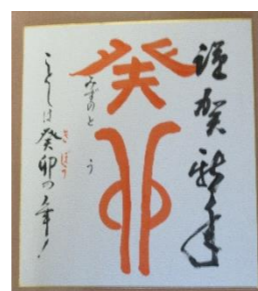 謹賀新年
癸卯
みずのと う
ことしは癸卯の年!
きぼう